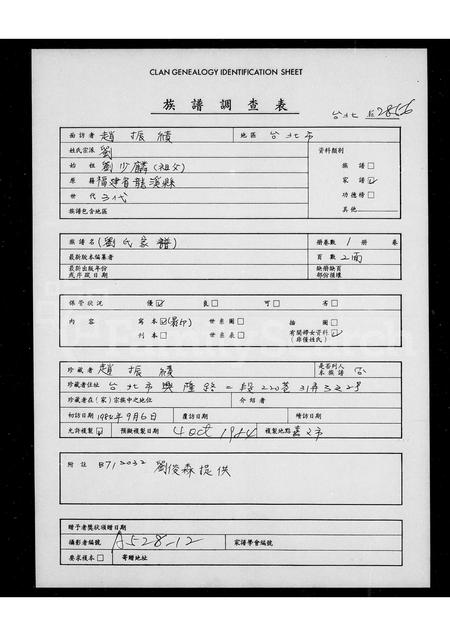 CLAN GENEALOGY IDENTIFICATION SHEET
族譜調查表
台北
面訪者 趙振績 地區 台北市
姓氏宗派 劉 資料類別
始祖 劉少麟(祖父) 族譜□
原籍 福建省龍溪縣 家譜☑
世代 三代 功德榜□
族譜包含地區 其他
族譜名 (劉氏家譜) 册卷數 1 册 卷
最新版本編纂者 頁數 2面
最新出版年份 缺册缺頁
或序跋日期 部份損壞
保管狀況 優☑ 良□ 可□ 布□
內容 寫本☑(影印) 世系圖□ 插圖□
刊本□ 世系表□ 有關婦女資料☑
(非僅姓氏)
珍藏者 趙振績 是否列入
本族譜 否
珍藏者住址 台北市興隆路二段220巷31弄3之2號
珍藏者在(家)宗族中之地位 介紹者
初訪日期 1984年9月6日 覆訪日期 續訪日期
允許複製☑ 預擬複製日期 4 Oct 1984 複製地點
附註 B713032 劉俊森提供
贈予者獎狀頒贈日期
攝影者編號 A528-12 宗譜學會編號
要求複本□ 寄贈地址